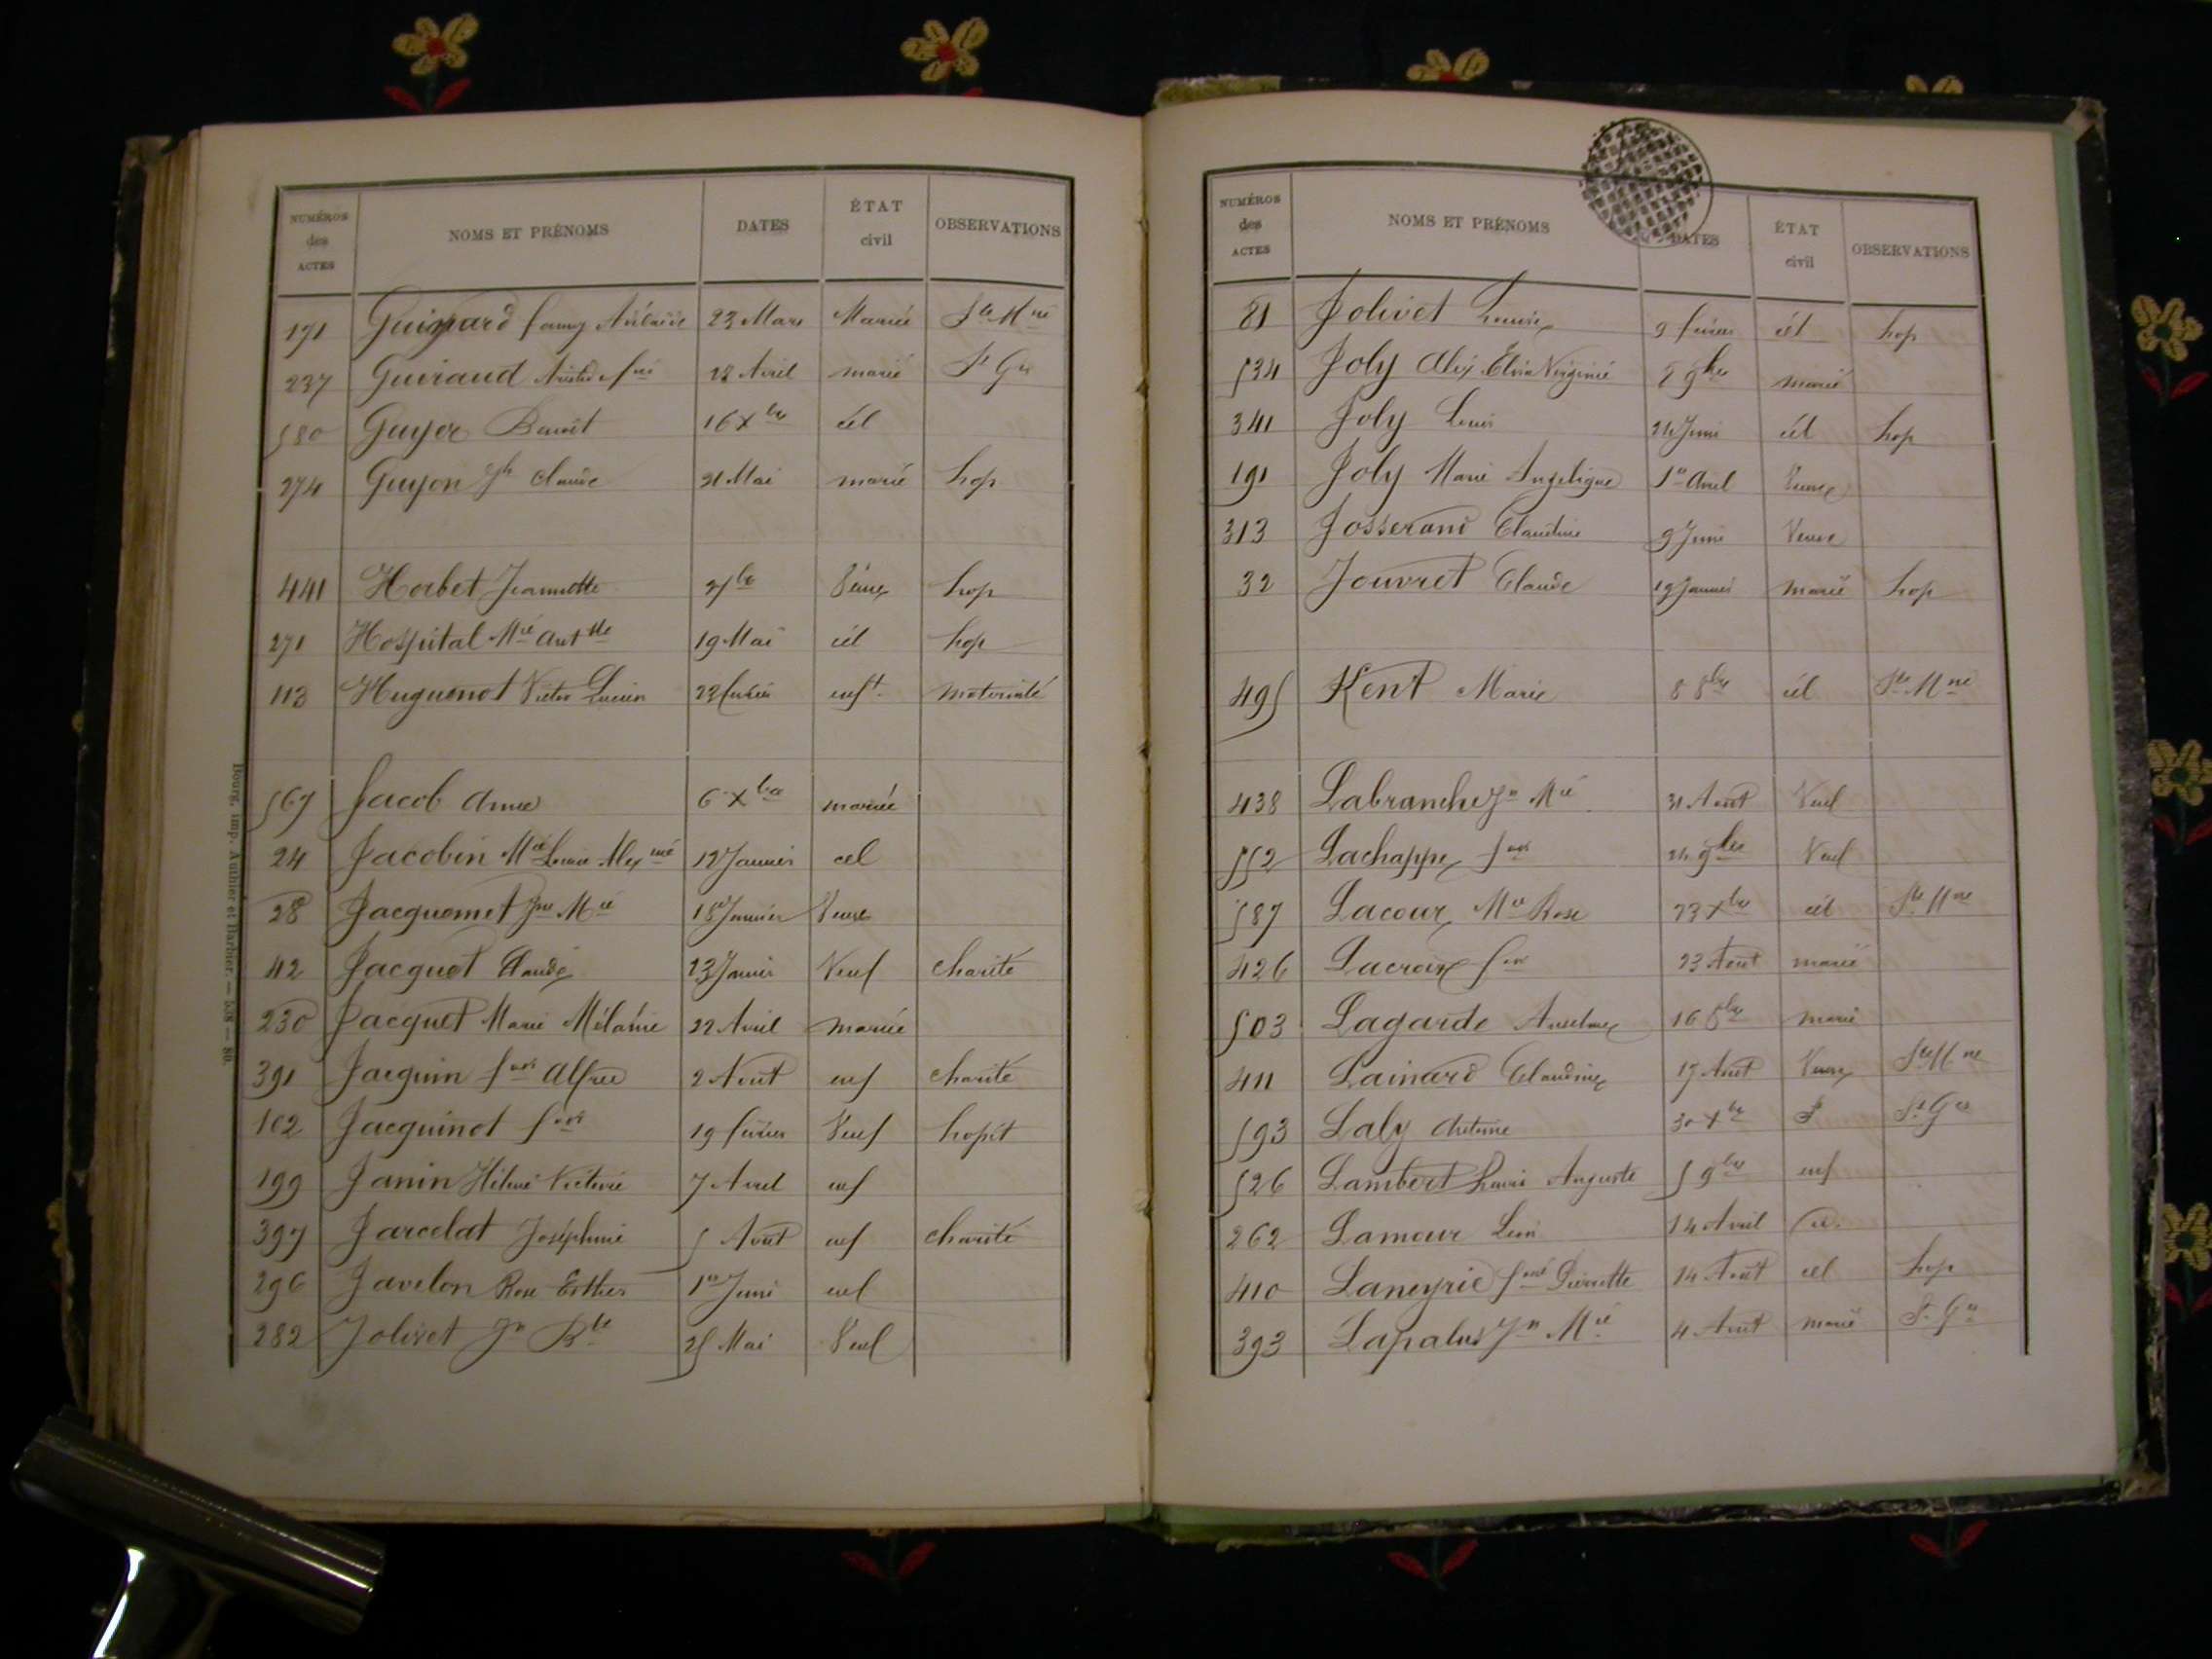 NUMÉROS des ACTES NOMS ET PRÉNOMS DATES ÉTAT civil OBSERVATIONS
171 fanny 23 Mars Mariée Ste Mne
237 Guiraud Avril marié St Ges
580 Guyer Benoit 16 Xbre cél
274 Guyon Jh Claude 21 Mai marié hop
441 Horbet Jeannette Veuve hop
271 Hospital Mie Anttte 19 Mai cél hop
113 Huguenot Victor Lucien 22 février enft. maternité
567 Jacob Anne 6 Xbre mariée
24 Jacobin Mie Louise 12 Janvier cel
28 Jacquemet Jne Mie 18 Janvier Veuve
42 Jacquet Claude 23 Janvier Veuf charité
230 Jacquet Marie Mélanie 22 Avril mariée
391 Jacquin fois Alfred 2 Aout enf charité
102 Jacquinot fois 19 février Veuf hopit
199 Janin Victorie 7 Avril enf
397 Jarcelat Joséphine 5 Aout enf charité
296 Javelon Rose Esther 1er Juin
282 Jolivet Jn Bte 25 Mai Veuf
Bourg, imp. Authier et Barbier. — 538 — 80.
NUMÉROS des ACTES NOMS ET PRÉNOMS DATES ÉTAT civil OBSERVATIONS
81 Jolivet Louise 9 février cél hop
534 Joly Virginie 9bre marié
341 Joly Louis 24 Juin cél hop
191 Joly Marie Angelique 1er Avril Veuve
313 Josserand Claudine 9 Juin Veuve
32 Jouvret Claude 19 Janvier marié hop
495 Kent Marie 8 8bre cél Ste Mne
438 Labranche Jn Mie 31 Aout Veuf
552 Lachappe fois 24 9bre Veuf
587 Lacour Mie Rose 23 Xbre cél Ste Mne
426 Lacroix fois 23 Aout marié
503 Lagarde Anselme 16 8bre marié
411 Lainard Claudine Aout Veuve Ste Mne
593 Laly Antoine 30 Xbre St Ges
526 Lambert Louis Auguste 5 9bre enf
262 Lamour Léon 14 Avril
410 Laneyrie Pierrette 14 Aout cel hop
393 Lapalus Jn Mie 4 Aout marié St Ges